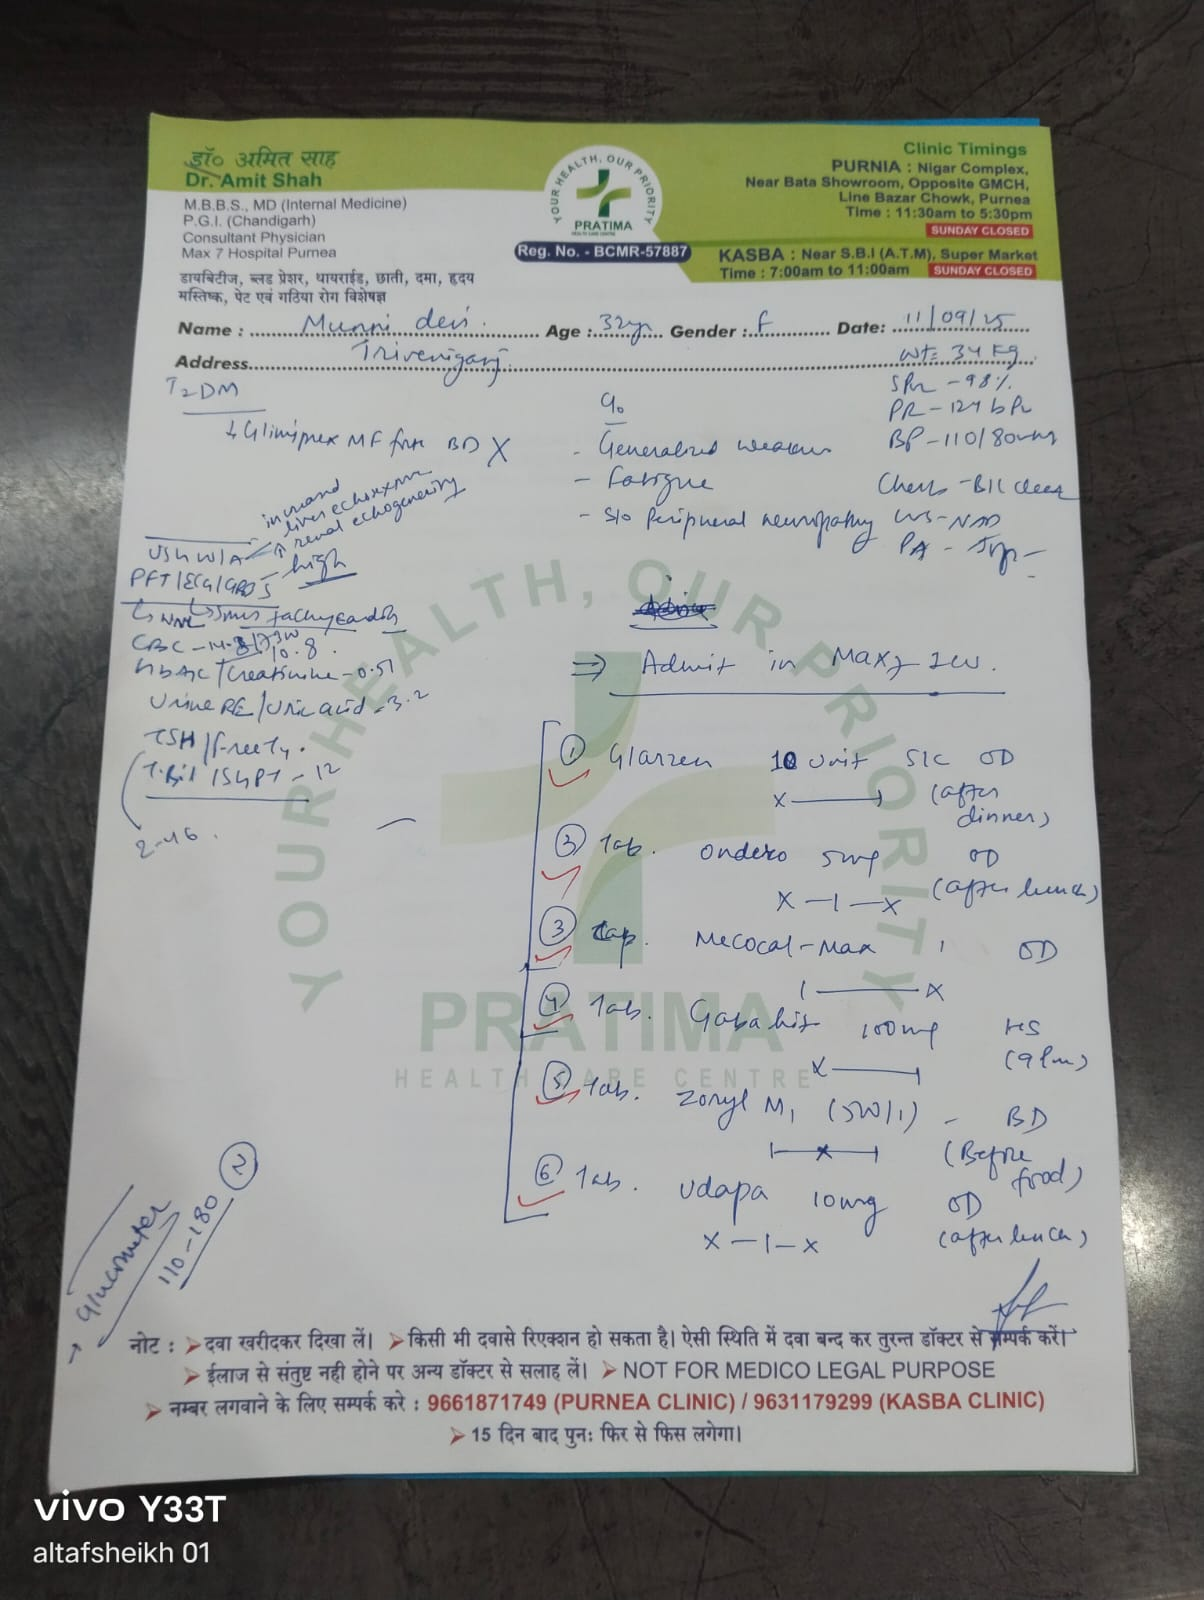 डॉ० अमित साह
Dr. Amit Shah
M.B.B.S., MD (Internal Medicine)
P.G.I. (Chandigarh)
Consultant Physician
Max 7 Hospital Purnea
डायबिटीज, ब्लड प्रेशर, थायराईड, छाती, दमा, हृदय
मस्तिष्क, पेट एवं गठिया रोग विशेषज्ञ
YOUR HEALTH, OUR PRIORITY
PRATIMA
HEALTH CARE CENTRE
Reg. No. - BCMR-57887
Clinic Timings
PURNIA : Nigar Complex,
Near Bata Showroom, Opposite GMCH,
Line Bazar Chowk, Purnea
Time : 11:30am to 5:30pm
SUNDAY CLOSED
KASBA : Near S.B.I (A.T.M), Super Market
Time : 7:00am to 11:00am SUNDAY CLOSED
Name : Munni devi Age : 32yr Gender : F Date: 11/09/25
Address Triveniganj
Wt= 34 Kg
T2DM
SPO2 - 98%
PR - 124 bpm
BP - 110/80
Glimiprex MF forte BD X
C/o
- Generalized weakness
- Fatigue
- S/o Peripheral neuropathy
Chest - B/L clear
CVS - NAD
PA -
USG W/A
liver
↑ renal echogenicity
PFT/ECG/GRBS - high
WNL Sinus Tachycardia
CBC -
10.8
HbA1C/Creatinine - 0.51
Urine RE/Uric acid - 3.2
TSH/Free T4.
T.Bil/SGPT - 12
2-46.
⇒ Admit in Max 7 ICU.
① Glarzen 10 unit S/C OD
(after dinner)
Tab. Ondero 5mg OD
X-1-X (after lunch)
③ Cap. Mecocal-Max 1 OD
④ Tab. Gabahit 100mg HS
(9pm)
⑤ Tab. Zoryl M1 - BD
(Before food)
⑥ Tab. Udapa 10mg OD
X-1-X (after lunch)
Glucometer
110-180 ②
YOUR HEALTH, OUR PRIORITY
PRATIMA
HEALTH CARE CENTRE
नोट : ➤ दवा खरीदकर दिखा लें। ➤ किसी भी दवासे रिएक्शन हो सकता है। ऐसी स्थिति में दवा बन्द कर तुरन्त डॉक्टर से सम्पर्क करें।
➤ ईलाज से संतुष्ट नही होने पर अन्य डॉक्टर से सलाह लें। ➤ NOT FOR MEDICO LEGAL PURPOSE
➤ नम्बर लगवाने के लिए सम्पर्क करे : 9661871749 (PURNEA CLINIC) / 9631179299 (KASBA CLINIC)
➤ 15 दिन बाद पुनः फिर से फिस लगेगा।
vivo Y33T
altafsheikh 01